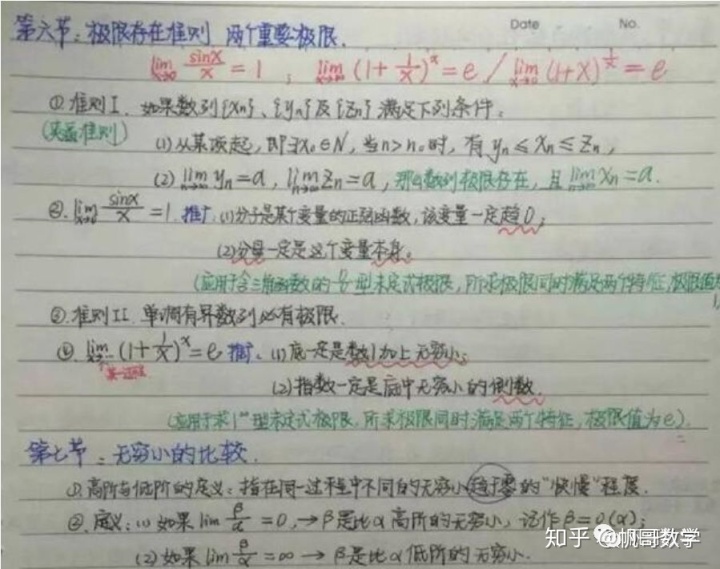 Date No.
第六节:极限存在准则 两个重要极限.
lim x→0 sinx/x = 1 ; lim x→∞ (1+1/x)^x = e / lim x→0 (1+X)^(1/x) = e
①准则I. 如果数列{Xn}、{Yn}及{Zn}满足下列条件:
(夹逼准则) (1)从某项起,即∃n₀∈N,当n>n₀时,有 yn ≤ Xn ≤ Zn,
(2) lim n→∞ yn=a, lim n→∞ Zn=a, 那么数列极限存在,且 lim n→∞ Xn=a.
②. lim x→0 sinx/x =1. 推广 (1)分子是某个变量的正弦函数,该变量一定趋0;
(2)分母一定是这个变量本身。
(应用于含三角函数的 0/0 型未定式极限,所求极限同时满足两个特征,极限值为1
③.准则II. 单调有界数列必有极限.
④. lim (1+1/x)^x = e 推广. (1)底一定是数1加上无穷小;
某一过程 (2)指数一定是底中无穷小的倒数.
(应用于求1^∞型未定式极限,所求极限同时满足两个特征,极限值为e).
第七节:无穷小的比较.
①.高阶与低阶的定义:指在同一过程中不同的无穷小趋于零的“快慢”程度.
②.定义:(1)如果lim β/α =0,→β是比α高阶的无穷小,记作β=o(α);
(2)如果lim β/α =∞ → β是比α低阶的无穷小.
知乎 @帆哥数学